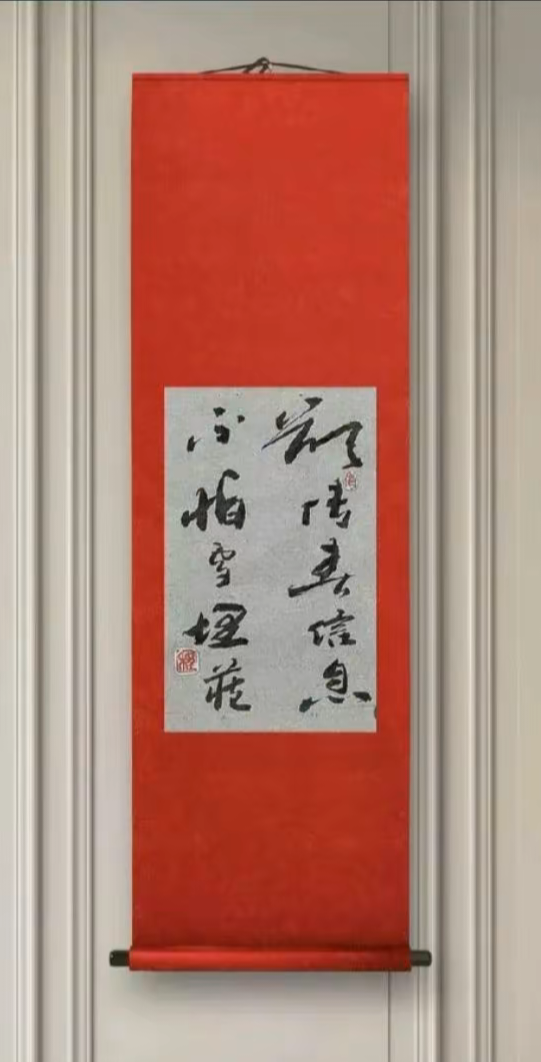 欲传春信息
不怕雪埋藏